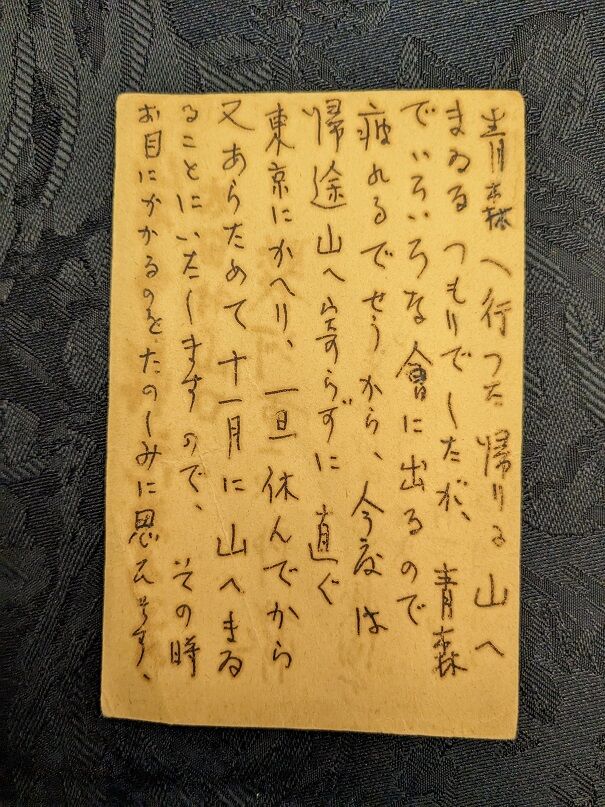 青森へ行つた帰りに山へ
まゐるつもりでしたが、青森
でいろいろな會に出るので
疲れるでせうから、今度は
帰途山へ寄らずに直ぐ
東京にかへり、一旦休んでから
又あらためて十一月に山へまゐ
ることにいたしますので、その時
お目にかかるのをたのしみに思ひます、